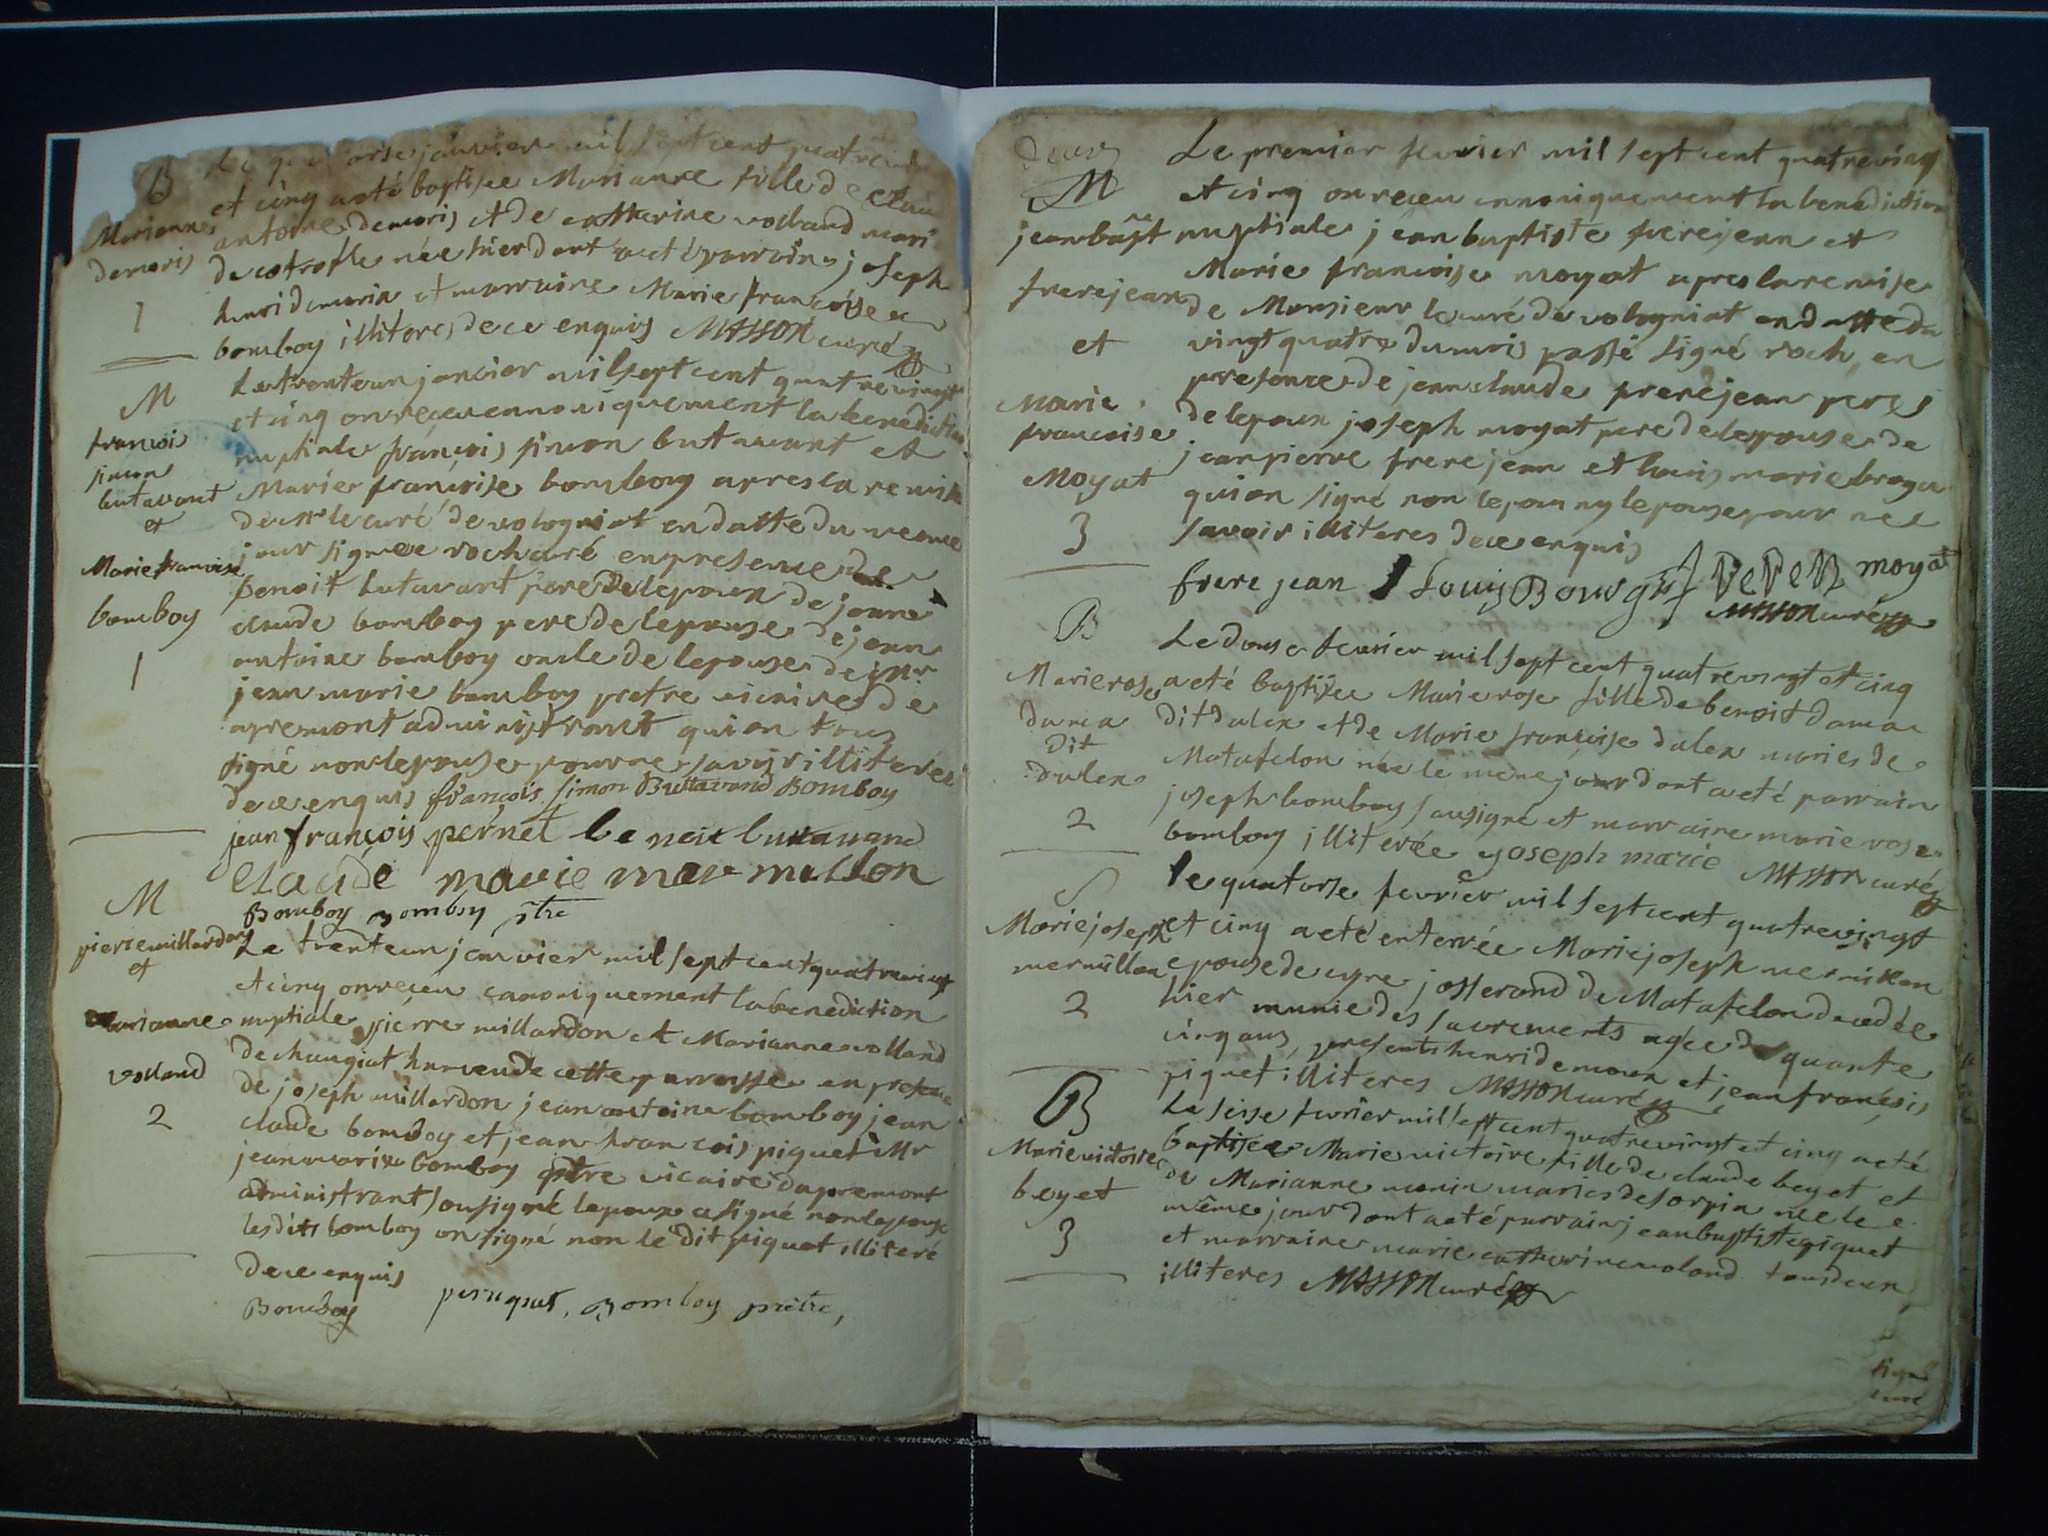 B
Marianne
demoris
1
Le quatorse janvier mil sept cent quatrevingt
et cinq a eté baptisée Marianne fille de clau
antoine demoris et de catherine volland mari
de cotrofle née hier dont a eté parrain joseph
henri demoria et marraine Marie francoise
bomboy illiteres de ce enquis MASSON curé
M
francois
simon
butavant
et
Marie francoise
bomboy
1
Le trenteun janvier mil sept cent quatrevingt
et cinq on receu cannoniquement la benediction
nuptiale françois simon butavant et
Marie françoise bomboy apres la remise
de mr le curé de volognat en datte du meme
jour signée roch curé en presence de
benoit butavant pere de lepoux de jeane
claude bomboy pere de lepouse de jean
antoine bomboy oncle de lepouse de mr
jean marie bomboy pretre vicaire de
apremont administrant qui on tous
signé non lepouse pour ne savoir illiterée
de ce enquis françois simon Buttavand Bomboy
jean françois pernet benoit butavand
claude marie mermillon
Bomboy Bomboy ptre
M
pierre millardon
et
Marianne
volland
2
Le trenteun janvier mil sept cent quatrevingt
et cinq on receu canoniquement la benediction
nuptiale pierre millardon et Marianne volland
de chaugiat hurvende cette parroisse en presence
de joseph millardon jean antoine bomboy jean
claude bomboy et jean francois piquet Mr
jean marie bomboy ptre vicaire dapremont
administrant sousigné lepoux a signé non lepouse
lesdits bomboy on signé non le dit piquet illiteré
de ce enquis
Bomboy piruquet, Bomboy prêtre,
deux
M
jean bapt
frerejean
et
Marie
francoise
Moyat
3
Le premier fevrier mil sept cent quatrevingt
et cinq on receu cannoniquement la benediction
nuptiale jean baptiste frerejean et
Marie francoise moyat apres la remise
de Monsieur le curé de volognat en datte du
vingt quatre du mois passé signé roch, en
presence de jean claude frerejean pere
de lepoux joseph moyat pere de lepouse de
jean pierre frerejean et louis marie
qui on signé non lepoux ny lepouse pour ne
savoir illiteres de ce enquis
frere jean Louis moyat
MASSON curé
B
Marie rose
dama
dit
dalex
2
Le douse fevrier mil sept cent quatrevingt et cinq
a eté baptisée Marie rose fille de benoit dama
dit dalex et de Marie françoise dalex mariés de
Matafelon née le meme jour dont a eté parrain
joseph bomboy sousigné et marraine marie rose
bomboy illiterée joseph marie MASSON curé
S
Marie joseph
mermillon
2
le quatorse fevrier mil sept cent quatrevingt
et cinq a eté enterrée Marie joseph mermillon
epouse de cyre josserand de Matafelon decedée
hier munie des sacrements agée de quarente
cinq ans, presents henri demoux et jean françois
piquet illiteres MASSON curé
B
Marie victoire
beyet
3
Le seise fevrier mil sept cent quatrevingt et cinq a eté
baptisée Marie victoire fille de claude beyet et
de Marianne monin mariés de sorpia née le
même jour dont a eté parrain jean baptiste piquet
et marraine marie catherine voland tous deux
illiteres MASSON curé